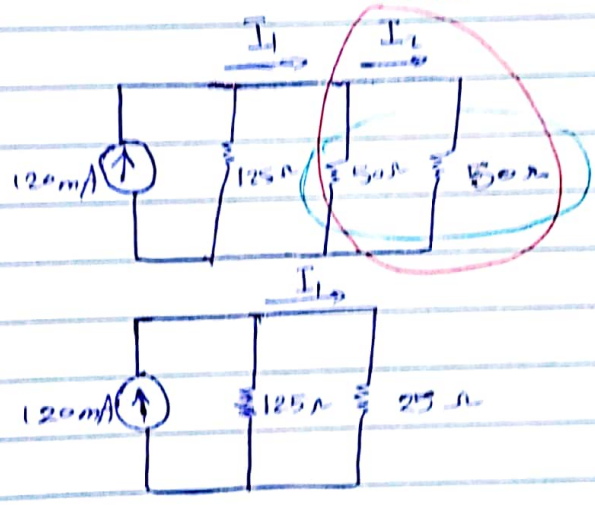 I₁ I₂
120mA 125Ω 50Ω 50Ω
I₁
120mA 125Ω 25Ω